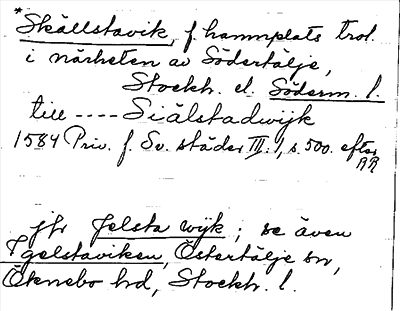 *
Skällstavik, f. hamnplats trol.
i närheten av Södertälje,
Stockh. el. Söderm. l.
till ---- Siälstadwijk
1584 Priv. f. Sv. städer III: 1, s. 500. efter
RR
jfr Jelsta wijk; se även
Igelstaviken, Östertälje sn,
Öknebo hd, Stockh. l.